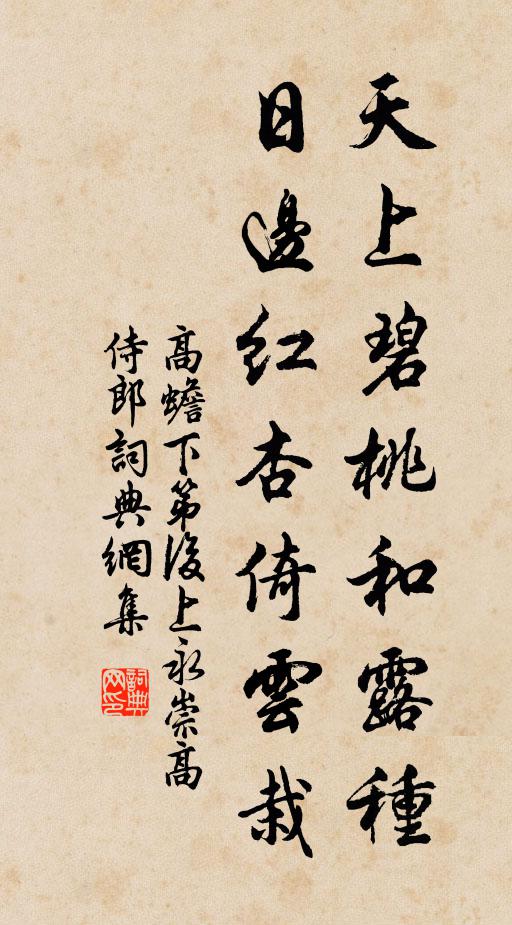 天上碧桃和露種
日邊紅杏倚雲栽
高蟾下第後上永崇高
侍郎詞典網集
詞典
网印